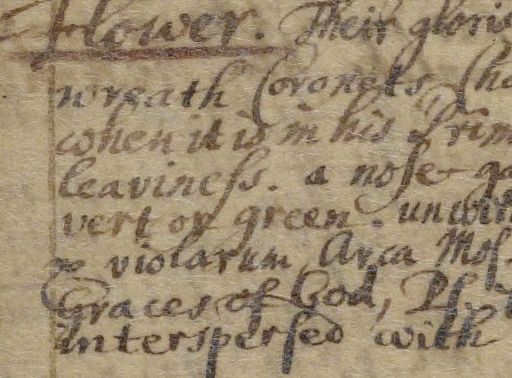 Flower. Their glorio
wreath Coronets, Cha
when it is in his Prim
leaviness. a nose-ga
vert or green. unwith
violarum, Arca Mos.
Graces of God, Ps.
Interspersed with